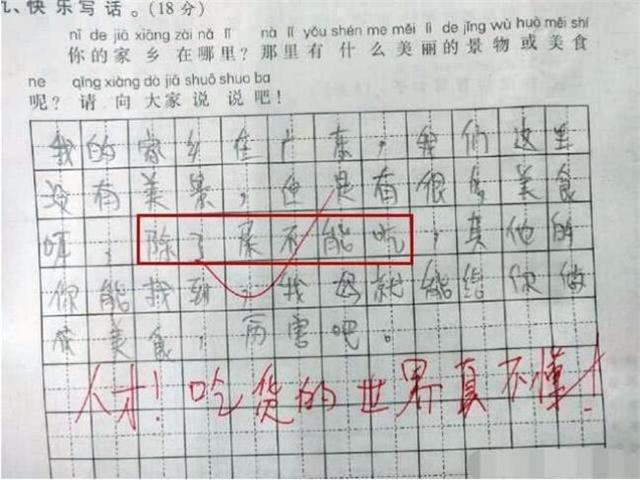 九、快乐写话。(18分)
nǐ de jiā xiāng zài nǎ lǐ nà lǐ yǒu shén me měi lì de jǐng wù huò měi shí
你的家乡在哪里?那里有什么美丽的景物或美食
ne qǐng xiàng dà jiā shuō shuo ba
呢?请向大家说说吧!
我的家乡在广东,我们这里
没有美景,但是有很多美食
呢,除了屎不能吃,其他的
你能找到,我妈就能给你做
成美食,厉害吧。
人才!吃货的世界真不懂!